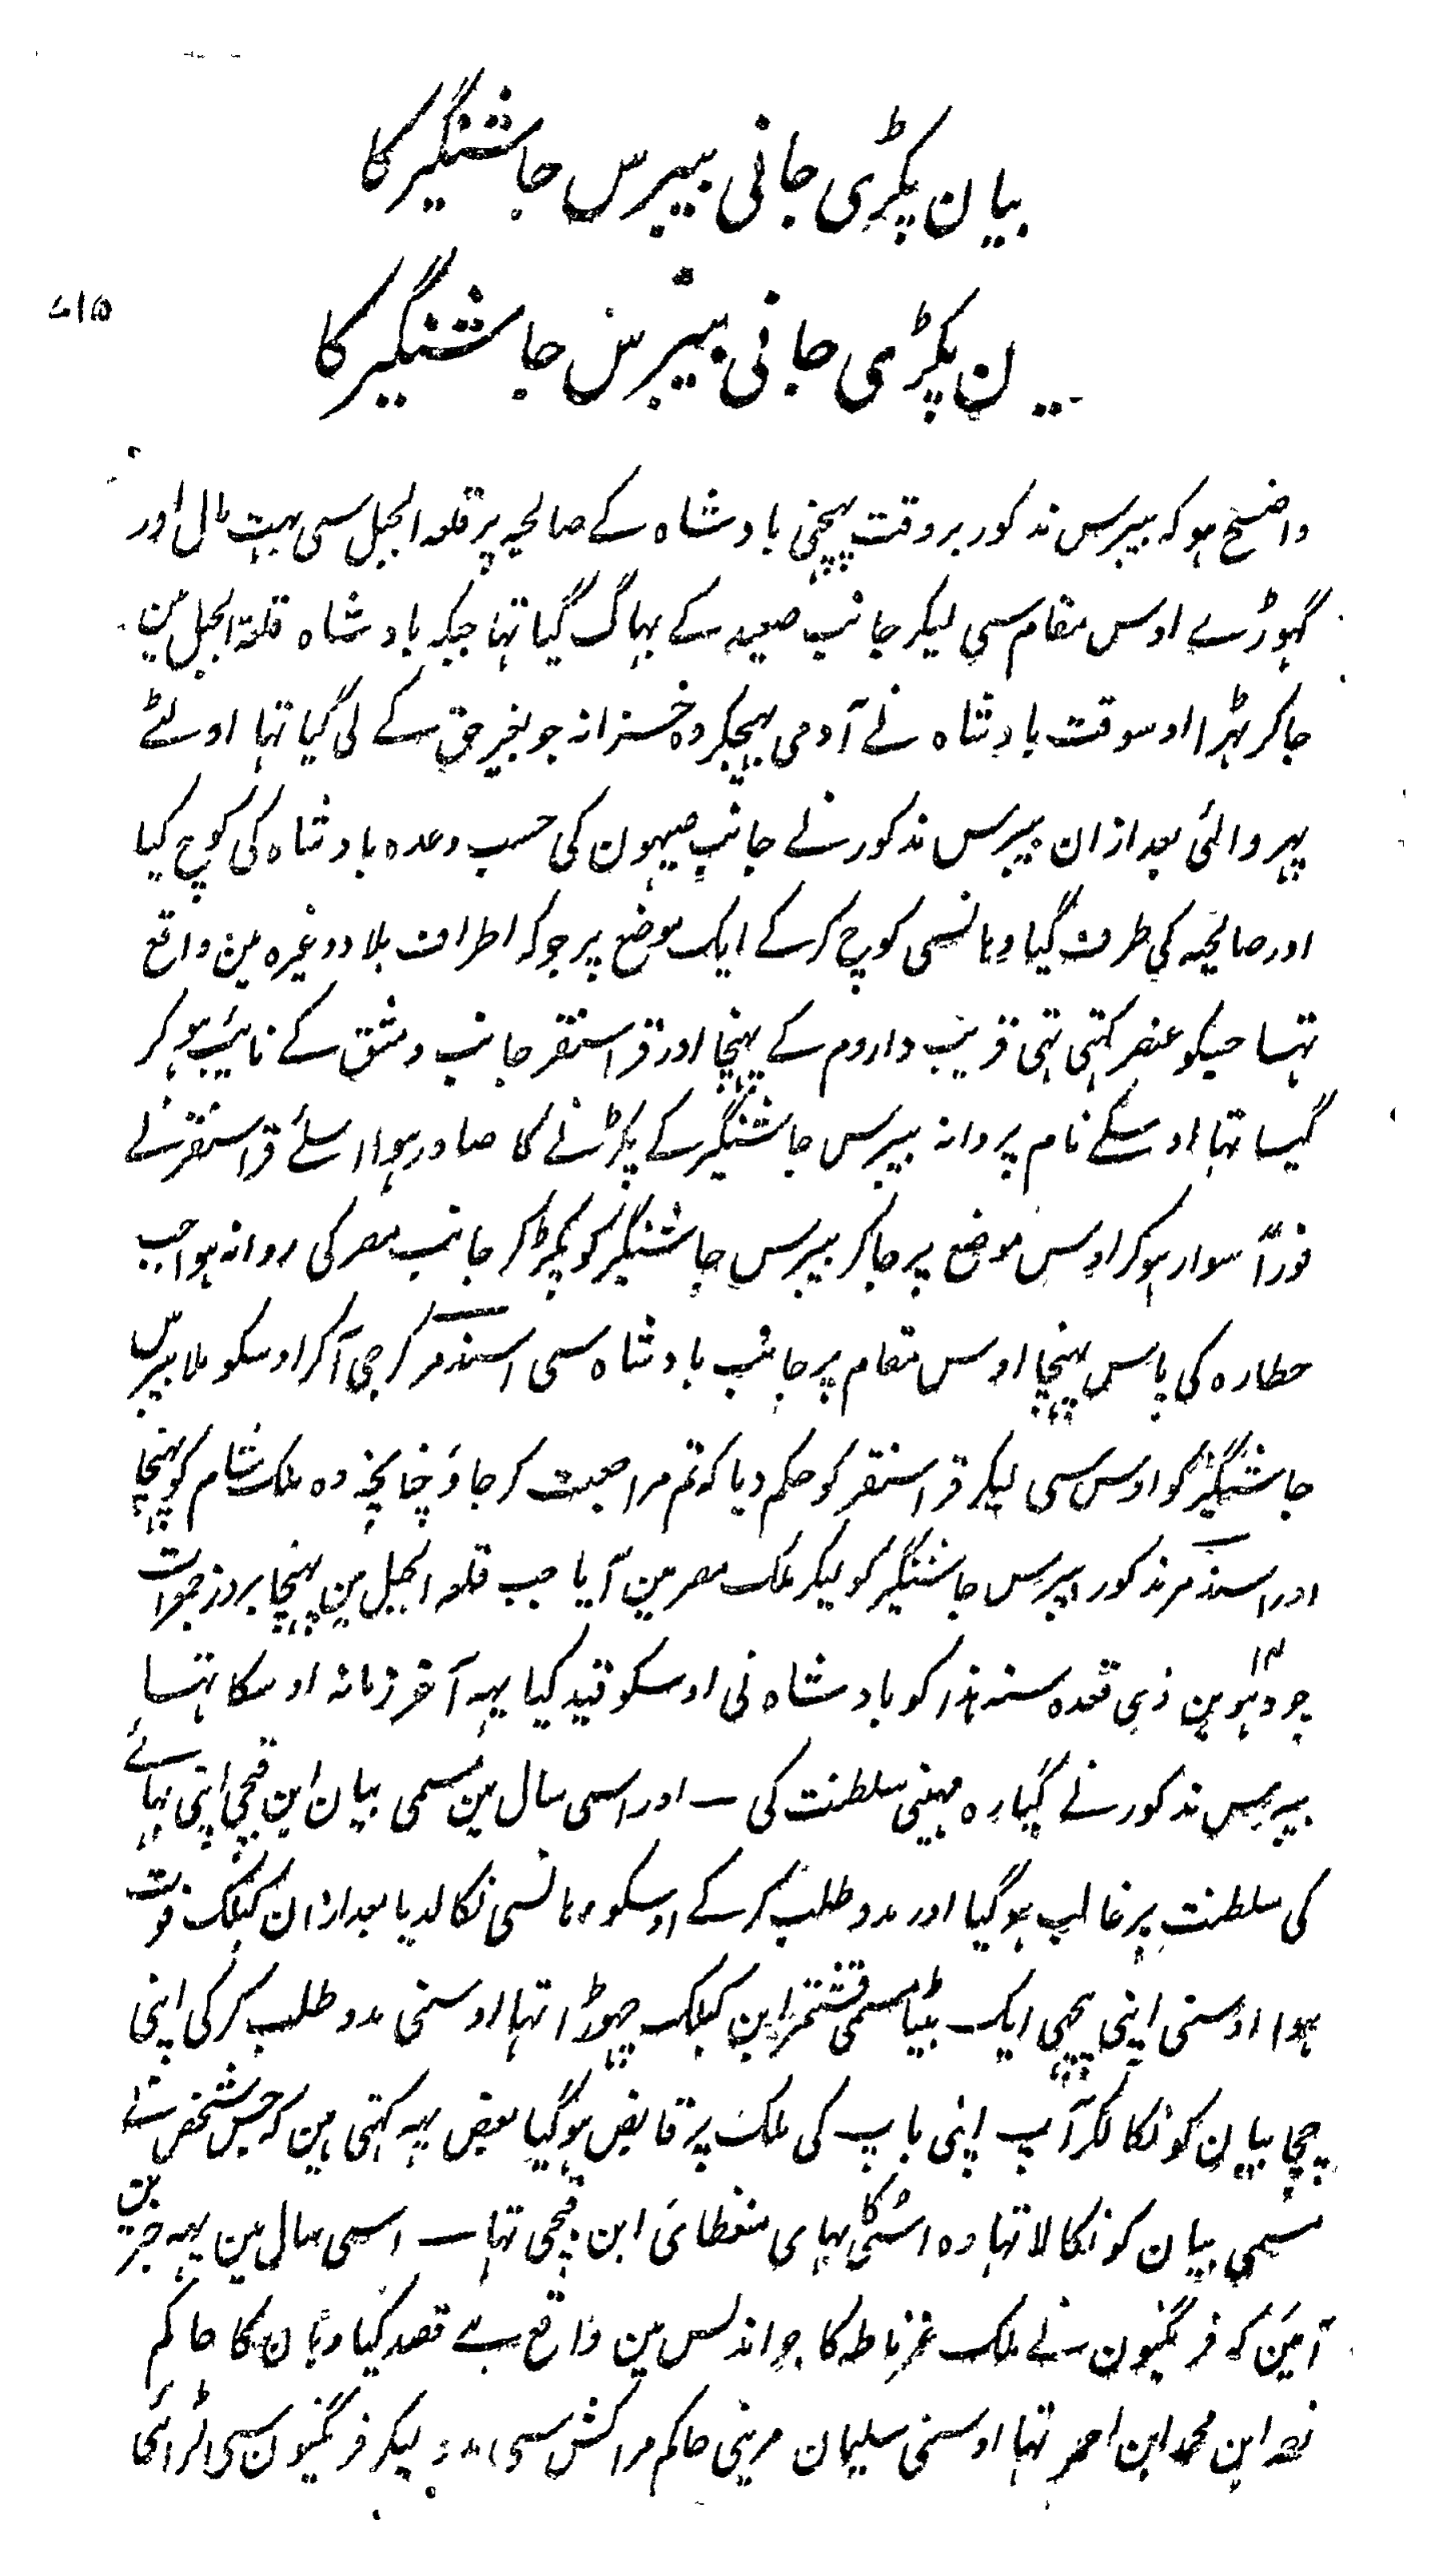 بیان پکڑی جانی بیبرس جاشنگیر کا
ن پکڑی جانی بیبرس جاشنگیر کا
واضح ہو کہ بیبرس مذکور بروقت پہچنی بادشاہ کے صالحیہ پر قلعہ الجبل سی بہت مال اور
گہوڑے اوس مقام سی لیکر جانب صعید کے بہاگ گیا تہا جبکہ بادشاہ قلعۃ الجبل مین
جاکر ٹہرا اوسوقت بادشاہ نے آدمی بہیجکر وہ خزانہ جو بغیر حق کے لی گیا تہا اولٹے
پہروالئی بعد ازان بیبرس مذکور نے جانب صیہون کی حسب وعدہ بادشاہ کی کوچ کیا
اور صالحیہ کی طرف گیا وہانسی کوچ کرکے ایک موضع پر جو کہ اطراف بلاد وغیرہ مین واقع
تہا جسکو عنصر کہتی تہی قریب داروم کے پہنچا اور قراسنقر جانب دمشق کے نایب ہو کر
گیا تہا اوسکے نام پروانہ بیبرس جاشنگیر کے پکڑنے کا صادر ہوا اسلئے قراسنقر نے
فوراً سوار ہوکر اوس موضع پر جاکر بیبرس جاشنگیر کو پکڑاکر جانب مصر کی روانہ ہوا جب
حطارہ کی پاس پہنچا اوس مقام پر جانب بادشاہ سی اسندمر کرجی آکر اوسکو ملا بیبرس
جاشنگیر کو اوس سی لیکر قراسنقر کو حکم دیا کہ تم مراجعت کر جاؤ چنانچہ وہ ملک شام کو پہنچا
اور اسندمر مذکور بیبرس جاشنگیر کو لیکر ملک مصر مین آیا جب قلعہ الجبل مین پہنچا بروز جمعرات
۱۴
چودہوین ذی قعدہ سنہ ہذا کو بادشاہ نی اوسکو قید کیا یہہ آخر زمانہ اوسکا تہا
بیبرس مذکور نے گیارہ مہینی سلطنت کی — اور اسی سال مین مسمی بیان ابن قبجی اپنی بہائے
کی سلطنت پر غالب ہوگیا اور مدد طلب کرکے اوسکو وہانسی نکالدیا بعد ازان کبلک فوت
ہوا اوسنی اپنی پیچہی ایک بیٹا مسمی قشتمر ابن کبلک چہوڑا تہا اوسنی مدد طلب کرکی اپنی
چچا بیان کو نکالکر آپ اپنی باپ کی ملک پر قابض ہوگیا بعض یہہ کہتی ہین کہ جس شخص نے
مسمی بیان کو نکالا تہا وہ اسکا بہای منغطای ابن قبجی تہا — اسی سال مین یہہ خبرین
آئین کہ فرنگیون نے ملک غرناطہ کا جو اندلس مین واقع ہے قصد کیا وہان کا حاکم
نصر ابن محمد ابن احمر تہا اوسنی سلیمان مرینی حاکم مراکش سی مدد لیکر فرنگیون سی لڑائی